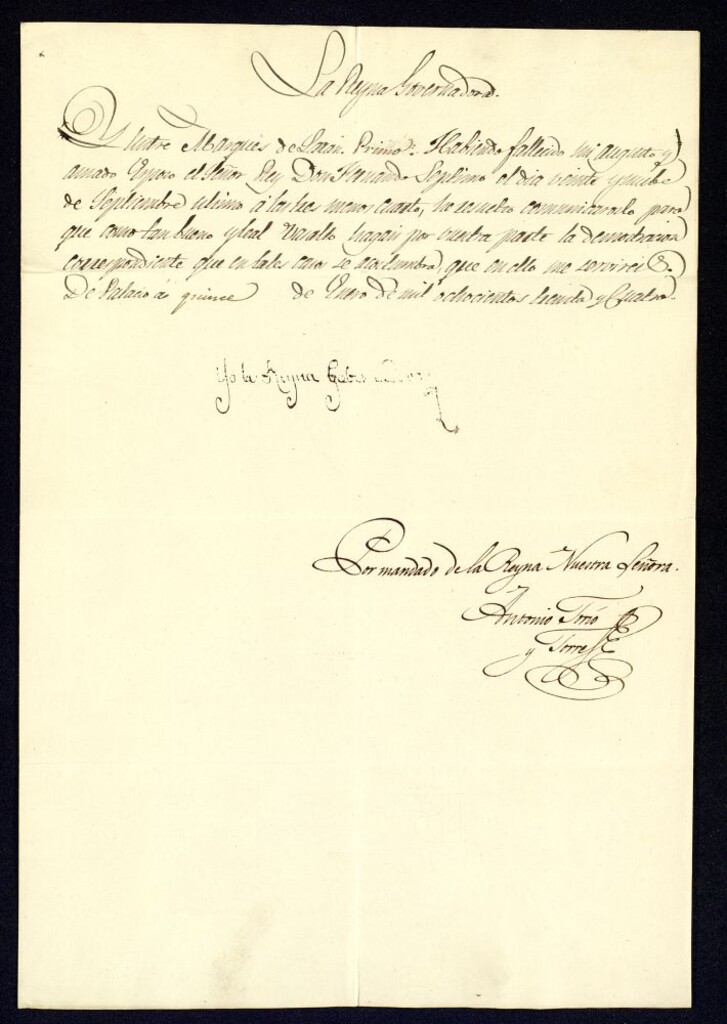 La Reyna Governadora.
Ylustre Marques de Primo: Habiendo fallecido mi augusto y
amado Esposo el Señor Rey Don Fernando Septimo el dia veinte y nueve
de Septiembre ultimo á las tres menos cuarto, he resuelto comunicaroslo para
que como tan bueno y leal Vasallo hagais por vuestra parte la demostracion
correspondiente que en tales casos se acostumbra, que en ello me servireis.
De Palacio á quince de Enero de mil ochocientos treinta y Cuatro.
Yo la Reyna Gobernadora
Por mandado de la Reyna Nuestra Señora.
Antonio Torio
y Torres